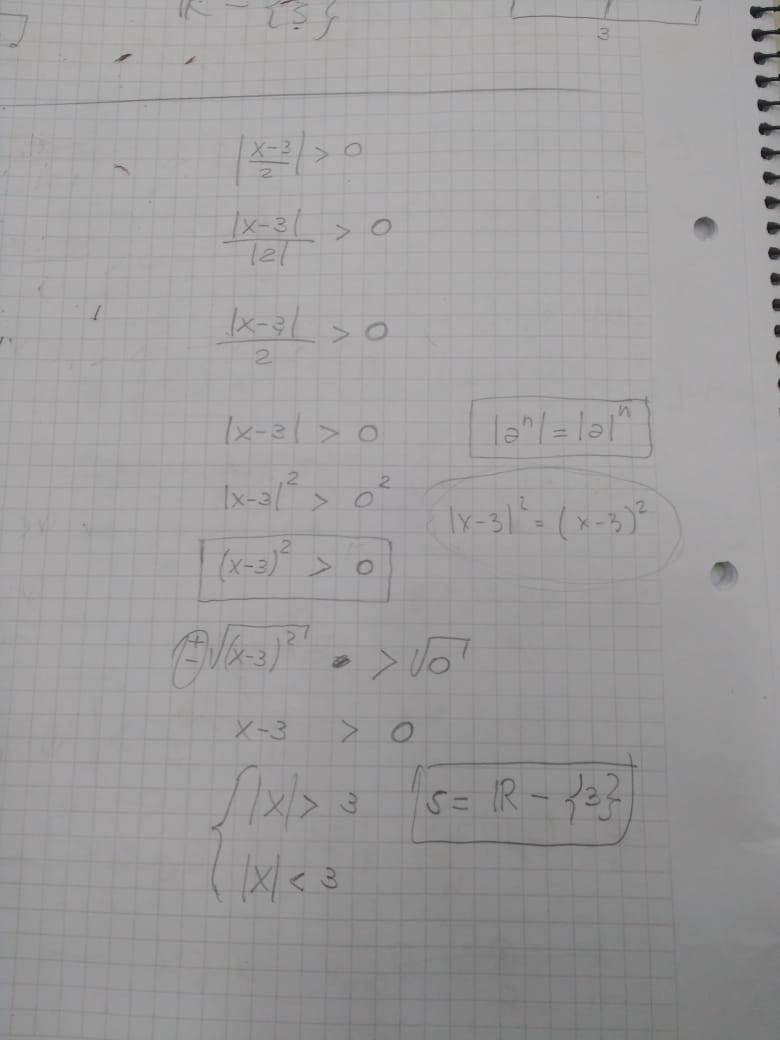 ℝ - {3}
3
|x-3/2| > 0
|x-3|/|2| > 0
|x-3|/2 > 0
|x-3| > 0
|aⁿ| = |a|ⁿ
|x-3|² > 0²
|x-3|² = (x-3)²
(x-3)² > 0
±√(x-3)² > √0
x-3 > 0
{ |x| > 3
S = ℝ - {3}
|x| < 3